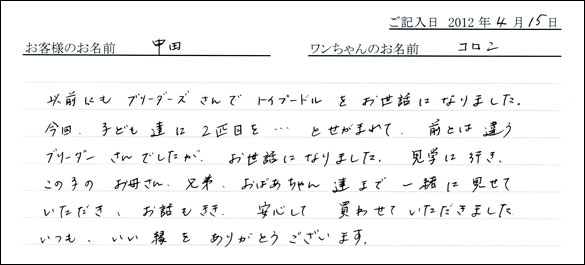 ご記入日 2012年4月15日
お客様のお名前 中田 ワンちゃんのお名前 コロン
以前にも ブリーダーズさんで トイプードル を お世話に なりました。
今回、子ども達に 2匹目を … と せがまれて、前とは 違う
ブリーダーさんでしたが、お世話になりました。見学に 行き、
この子の お母さん、兄弟、おばあちゃん 達まで 一緒に 見せて
いただき、お話も きき、安心して 買わせて いただきました。
いつも、いい 縁を ありがとう ございます。